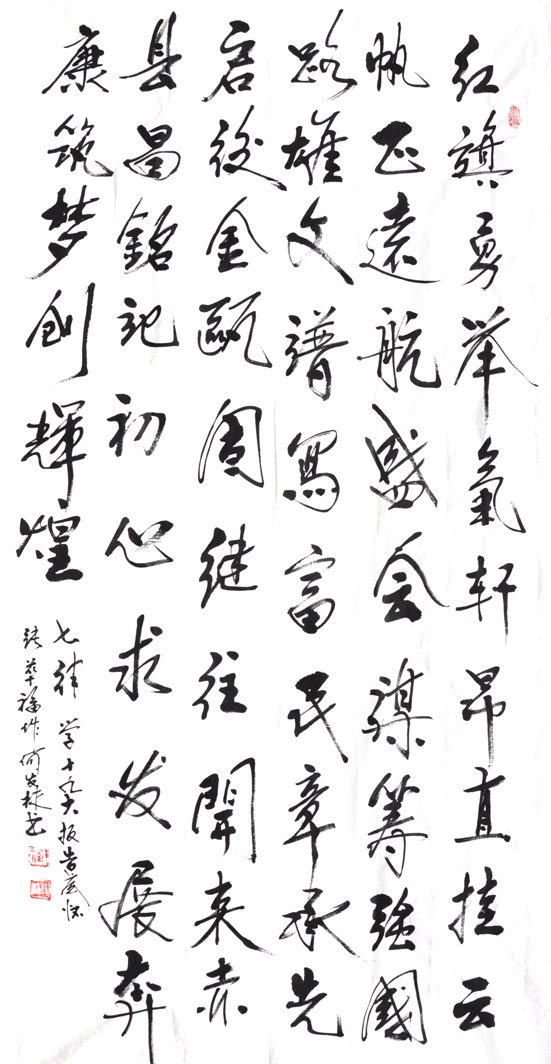 红旗勇举氣轩昂直挂云
帆正遠航盛会谋筹強國
路雄文谱寫富民章承先
启後金甌固继往開来赤
县昌銘记初心求发展奔
康筑梦创輝煌
七律 学十九大报告感怀
张華福作何发林书